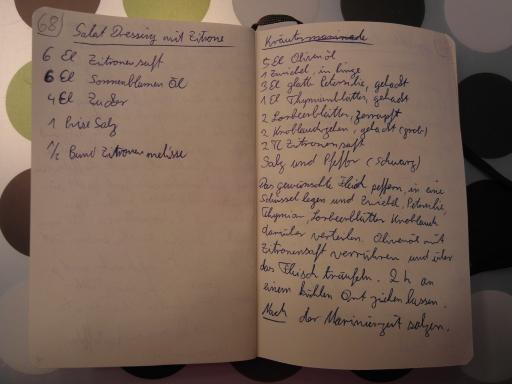 68
Salat Dressing mit Zitrone
6 El Zitronensaft
6 El Sonnenblumen Öl
4 El Zucker
1 Prise Salz
1/2 Bund Zitronenmelisse
Kräutermarinade
5 El Olivenöl
1 Zwiebel, in Ringe
3 El glatte Petersilie, gehackt
1 El Thymianblätter, gehackt
2 Lorbeerblätter, zerrupft
2 Knoblauchzehen, gehackt (grob)
2 Tl Zitronensaft
Salz und Pfeffer (schwarz)
Das gewünschte Fleisch pfeffern, in eine
Schüssel legen und Zwiebel, Petersilie,
Thymian, Lorbeerblätter Knoblauch
darüber verteilen. Olivenöl mit
Zitronensaft verrühren und über
das Fleisch träufeln. 2 h an
einem kühlen Ort ziehen lassen.
Nach der Marinierzeit salzen.